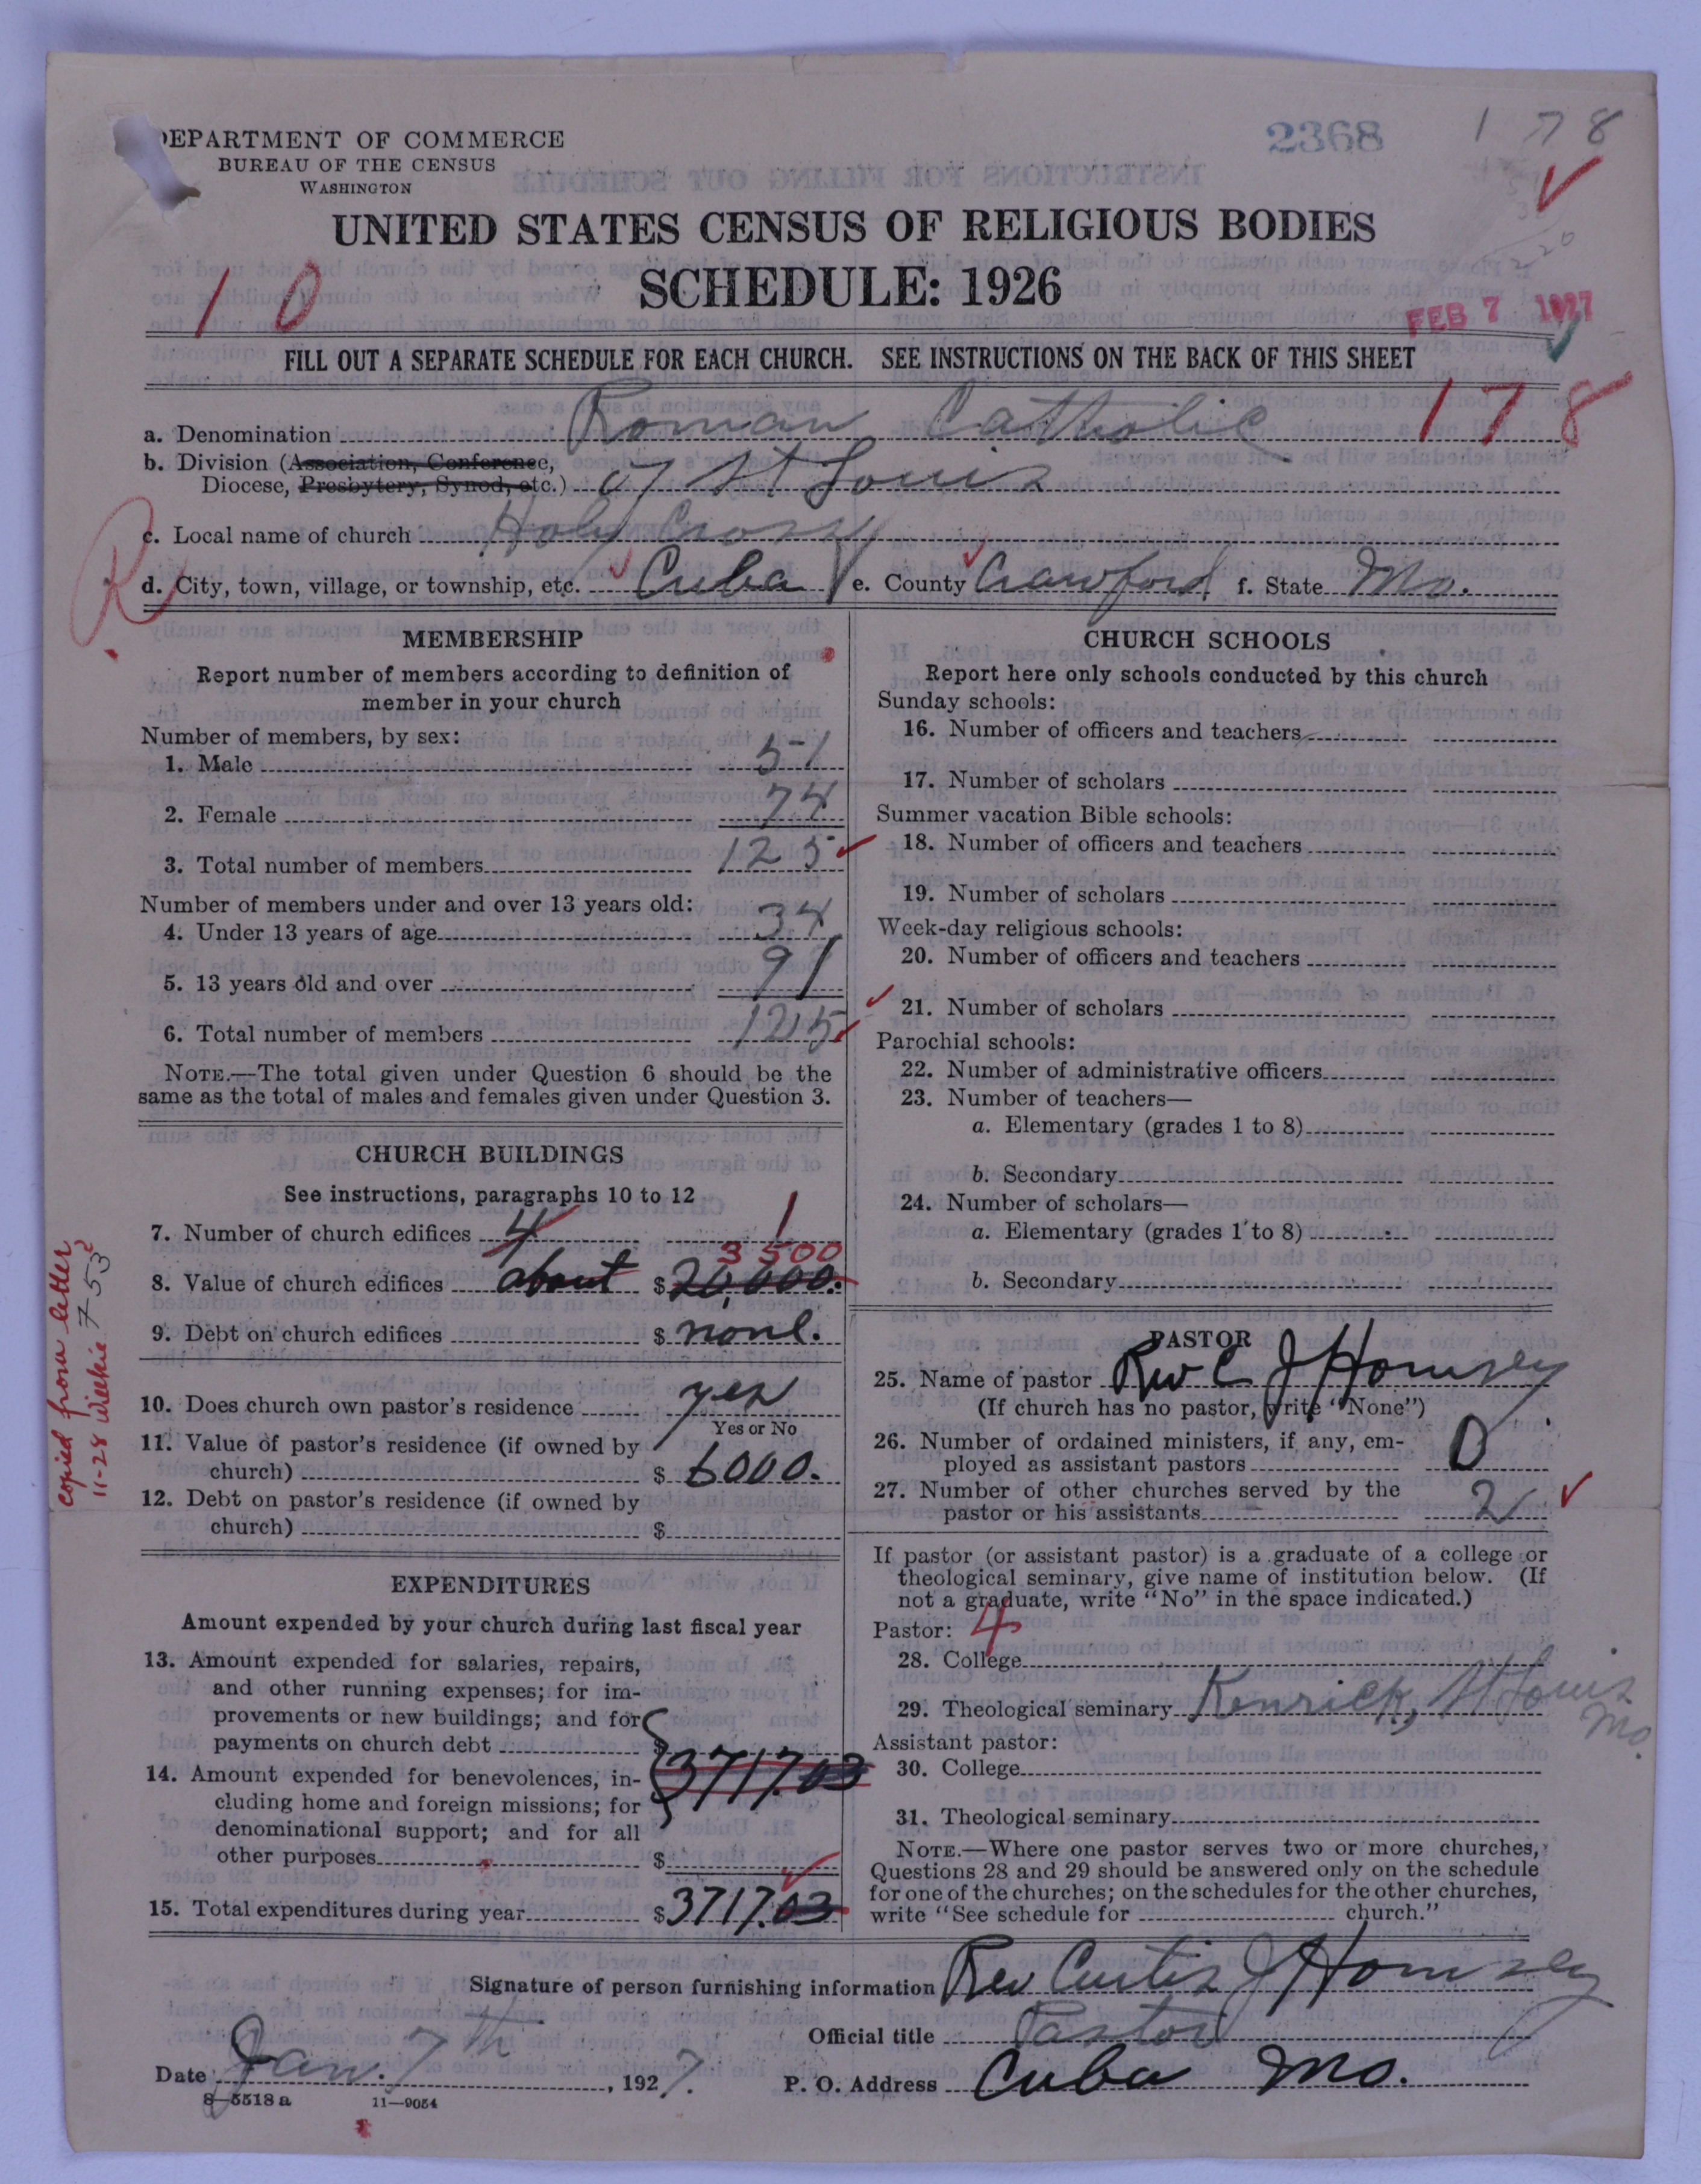 DEPARTMENT OF COMMERCE
BUREAU OF THE CENSUS
WASHINGTON
2368
1 78
UNITED STATES CENSUS OF RELIGIOUS BODIES
SCHEDULE: 1926
10
FEB 7 1927
FILL OUT A SEPARATE SCHEDULE FOR EACH CHURCH. SEE INSTRUCTIONS ON THE BACK OF THIS SHEET
178
a. Denomination Roman Catholic
b. Division (Association, Conference,
Diocese, Presbytery, Synod, etc.) of St Louis
c. Local name of church Holy Cross
R
d. City, town, village, or township, etc. Cuba e. County Crawford f. State Mo.
MEMBERSHIP
Report number of members according to definition of
member in your church
Number of members, by sex:
1. Male 51
2. Female 74
3. Total number of members 125
Number of members under and over 13 years old:
4. Under 13 years of age 34
5. 13 years old and over 91
6. Total number of members 125
NOTE.—The total given under Question 6 should be the
same as the total of males and females given under Question 3.
CHURCH BUILDINGS
See instructions, paragraphs 10 to 12
7. Number of church edifices 4 1
3500
8. Value of church edifices about $20,000.
9. Debt on church edifices $ none.
10. Does church own pastor's residence yes
Yes or No
11. Value of pastor's residence (if owned by
church) $ 6000.
12. Debt on pastor's residence (if owned by
church) $
copied from letter
11-28
EXPENDITURES
Amount expended by your church during last fiscal year
13. Amount expended for salaries, repairs,
and other running expenses; for im-
provements or new buildings; and for
payments on church debt $
14. Amount expended for benevolences, in- 3717.03
cluding home and foreign missions; for
denominational support; and for all
other purposes $
15. Total expenditures during year $3717.03
CHURCH SCHOOLS
Report here only schools conducted by this church
Sunday schools:
16. Number of officers and teachers
17. Number of scholars
Summer vacation Bible schools:
18. Number of officers and teachers
19. Number of scholars
Week-day religious schools:
20. Number of officers and teachers
21. Number of scholars
Parochial schools:
22. Number of administrative officers
23. Number of teachers—
a. Elementary (grades 1 to 8)
b. Secondary
24. Number of scholars—
a. Elementary (grades 1 to 8)
b. Secondary
PASTOR
25. Name of pastor Rev C J Hornsey
(If church has no pastor, write "None")
26. Number of ordained ministers, if any, em-
ployed as assistant pastors 0
27. Number of other churches served by the
pastor or his assistants 2
If pastor (or assistant pastor) is a graduate of a college or
theological seminary, give name of institution below. (If
not a graduate, write "No" in the space indicated.)
Pastor: 4
28. College
29. Theological seminary Kenrick, St Louis
Mo.
Assistant pastor:
30. College
31. Theological seminary
NOTE.—Where one pastor serves two or more churches,
Questions 28 and 29 should be answered only on the schedule
for one of the churches; on the schedules for the other churches,
write "See schedule for church."
Signature of person furnishing information Rev Curtis J Hornsey
Official title Pastor
Date Jan. 7th, 1927. P. O. Address Cuba Mo.
8—5518 a 11—9054